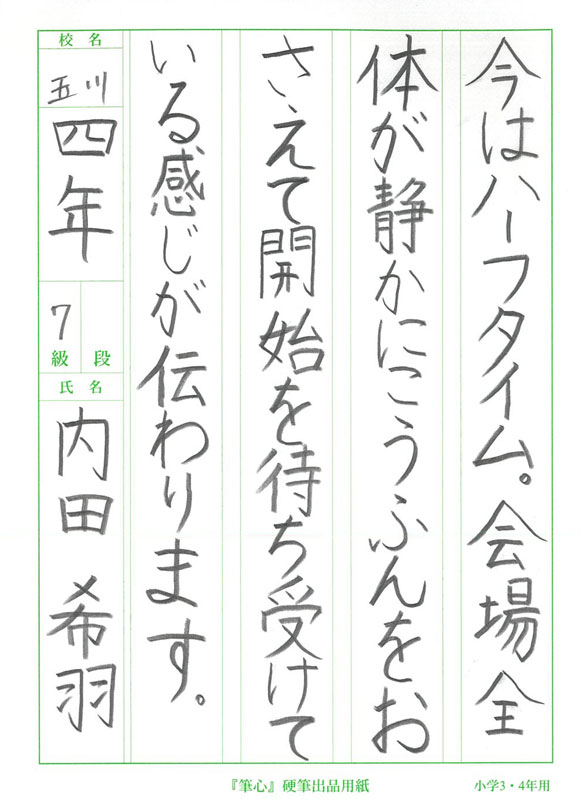 今はハーフタイム。会場全
体が静かにこうふんをお
さえて開始を待ち受けて
いる感じが伝わります。
校名
五川
四年
7
級 段
氏名
内田 希羽
『筆心』硬筆出品用紙
小学3・4年用